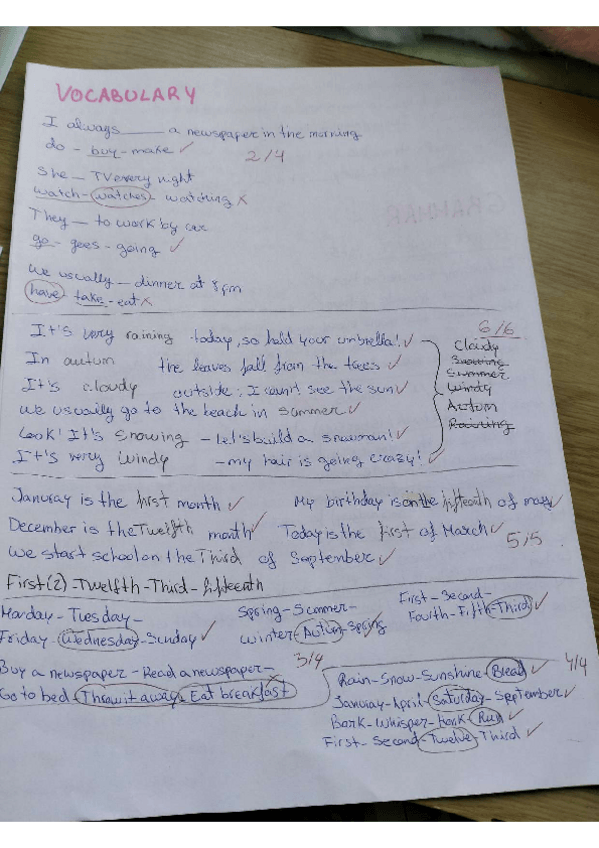 VOCABULARY
I always ____ a newspaper in the morning
do - buy - make ✓
2/4
She _ TV every night
watch - watches - watching x
They _ to work by car
go - goes - going ✓
we usually _ dinner at 8pm
have - take - eat x
6/6
It's very raining today, so hold your umbrella! ✓
In autum the leaves fall from the trees ✓
It's cloudy outside: I can't see the sun ✓
we usually go to the beach in summer ✓
Look! It's snowing - let's build a snowman! ✓
It's very windy - my hair is going crazy! ✓
Cloudy
Snowing
Summer
Windy
Autum
Raining
January is the first month ✓
My birthday is on the fifteenth of may ✓
December is the Twelfth month ✓
Today is the first of March ✓
we start school on the Third of September ✓
5/5
First(2) - Twelfth - Third - fifteenth
Monday - Tuesday -
Friday - Wednesday - Sunday ✓
Spring - Summer -
Winter - Autum - Spring ✓
First - Second -
Fourth - Fifth - Third ✓
3/4
Buy a newspaper - Read a newspaper -
Go to bed - Throw it away - Eat breakfast x
4/4
Rain - Snow - Sunshine - Bread ✓
January - April - Saturday - September ✓
Bark - Whisper - Honk - Run ✓
First - Second - Twelve - Third ✓